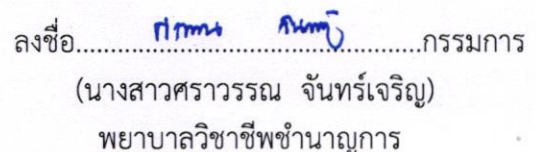 ลงชื่อ................................................กรรมการ
(นางสาวศราวรรณ จันทร์เจริญ)
พยาบาลวิชาชีพชำนาญการ